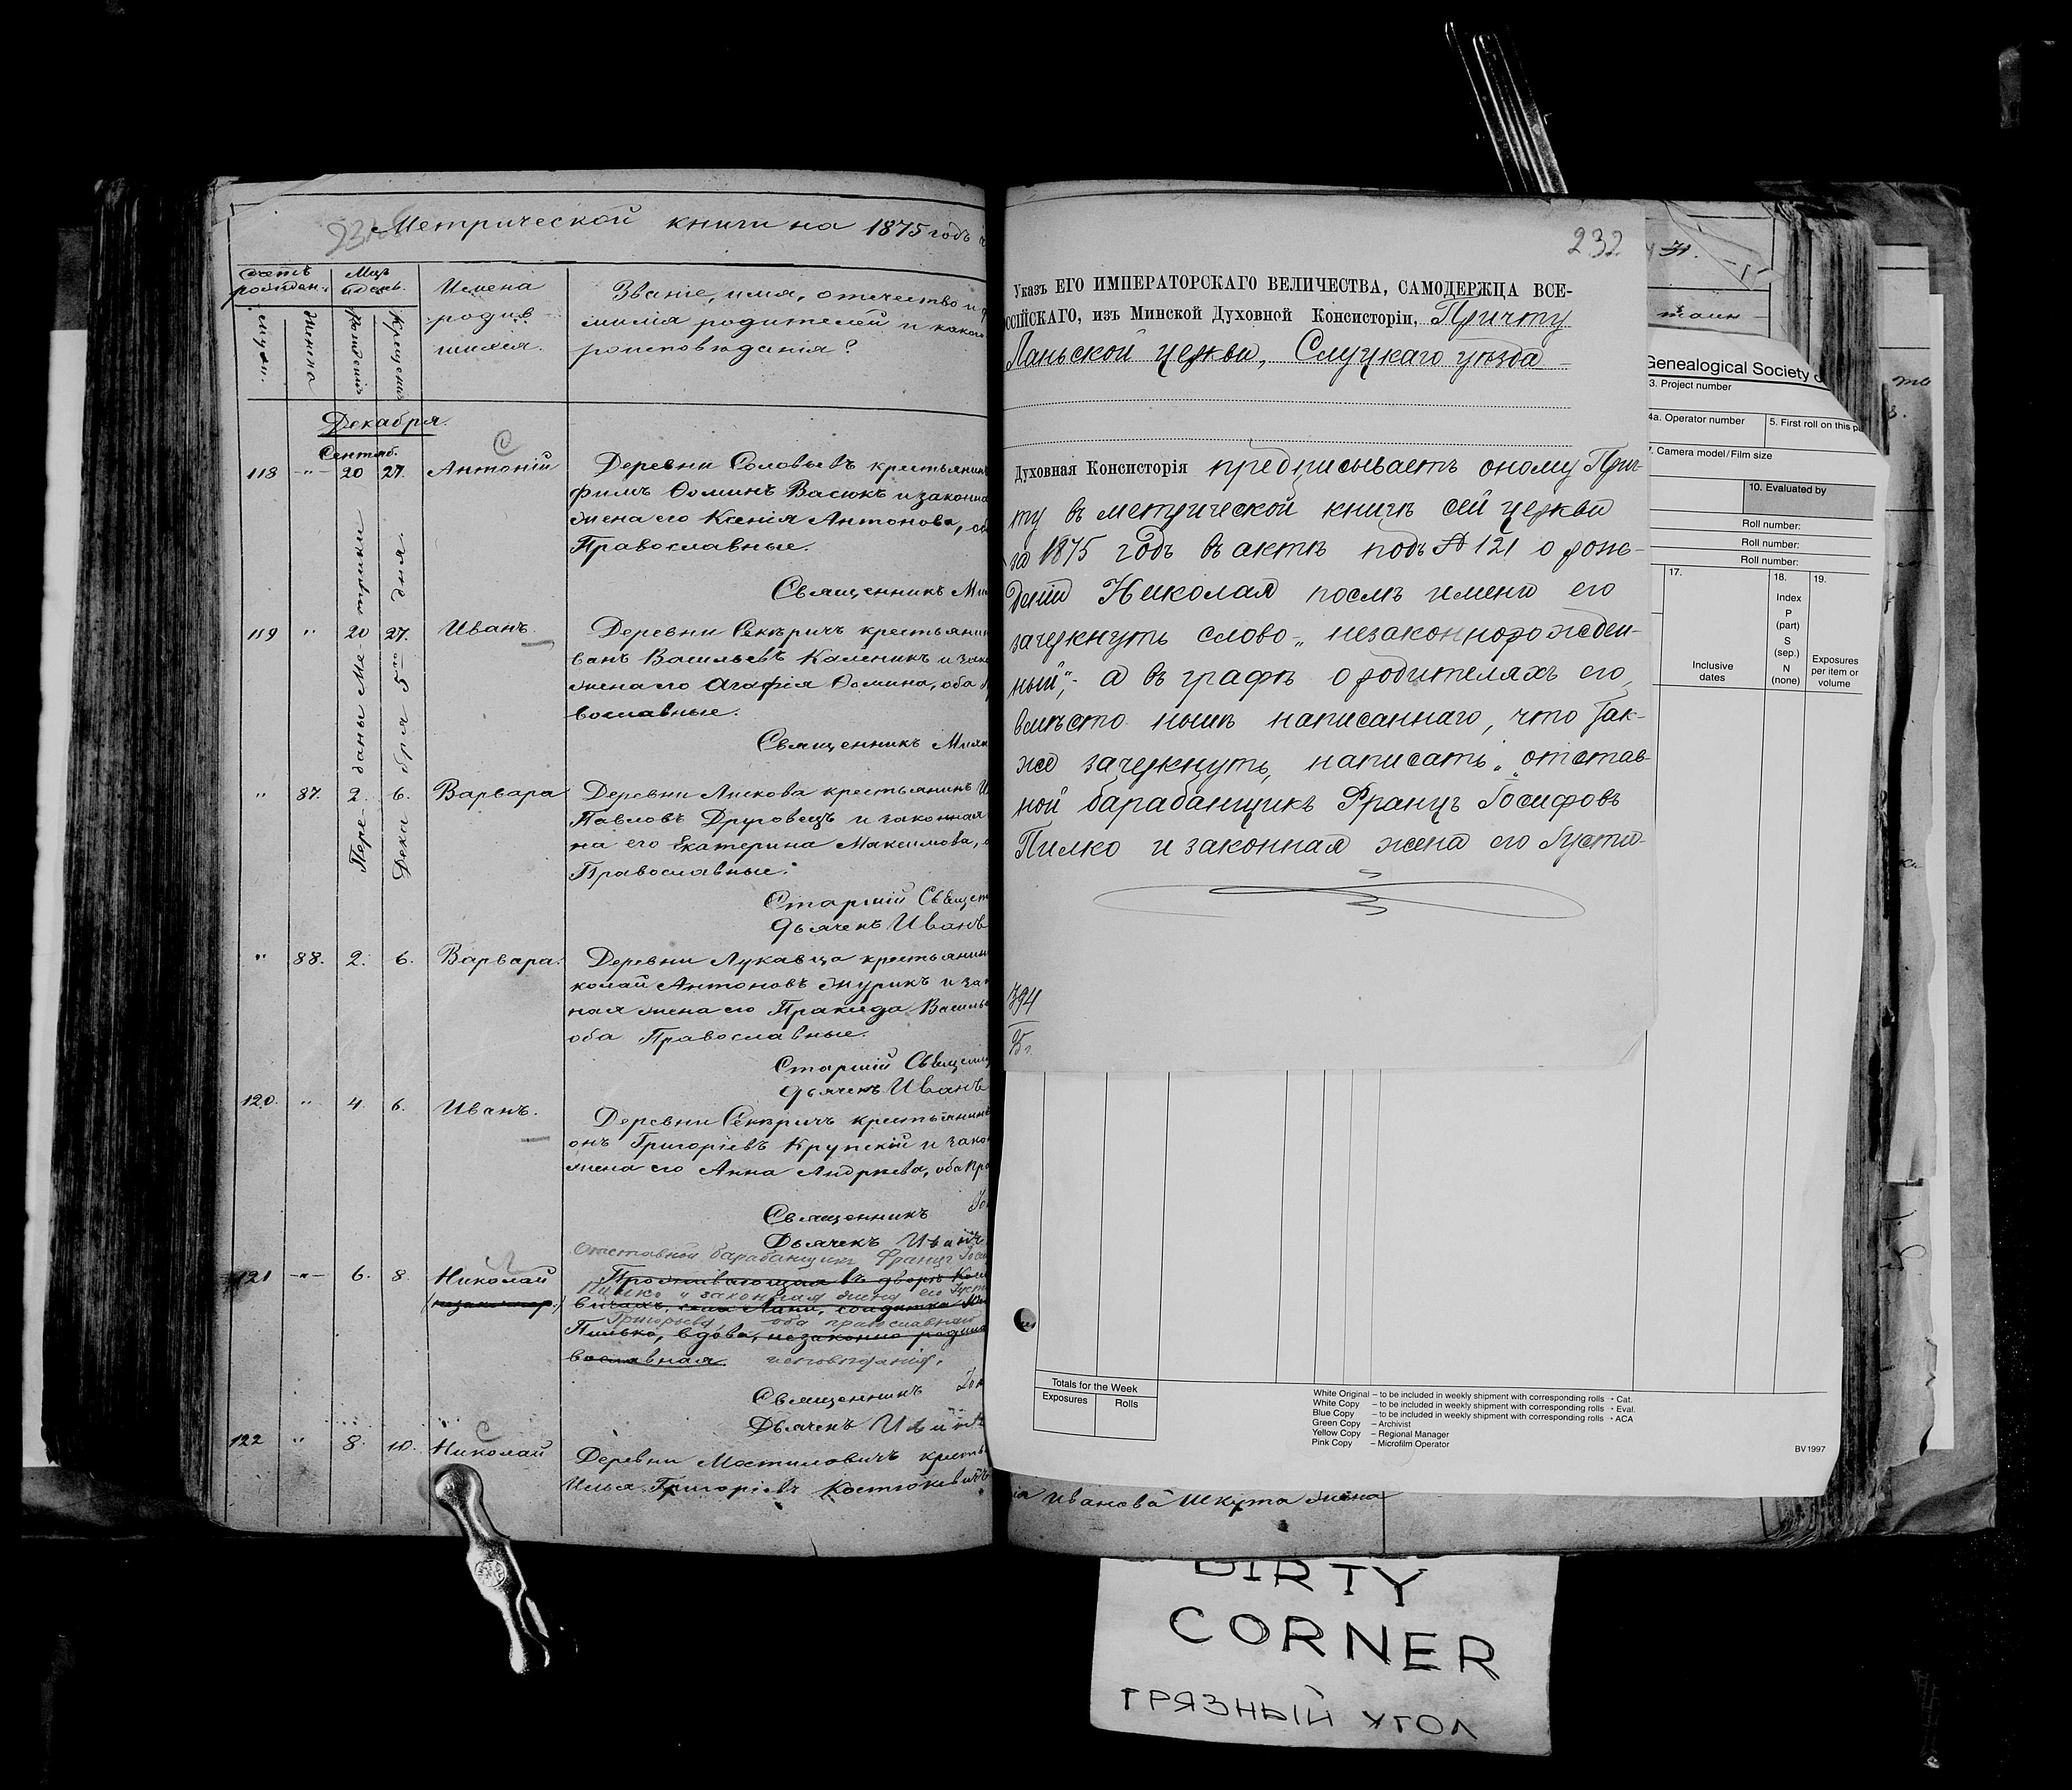 Метрической книги на 1875 годъ
Счетъ рожден.
Мцъ и день.
Имена родив шихся.
Званіе, имя, отчество и
милія родителей и како
роисповѣданія?
Муж.
Женска
Рожденія
Крещенія
Декабря.
Сентяб.
118 " 20 27. Антоній
Деревни Соловьевъ крестьянинъ
фимъ Ѳоминъ Васюкъ и законна
жена его Ксенія Антонова, об
Православные.
Священникъ Ми
Переданы Метрики
Декабря 5го дня.
119 " 20 27. Иванъ.
Деревни Секѣричъ крестьянин
ванъ Васильевъ Каленикъ и зак
жена его Агафія Ѳомина, оба П
вославные.
Священникъ Миха
" 87. 2. 6. Варвара
Деревни Лискова крестьянинъ И
Павловъ Друговецъ и законная
на его Екатерина Максимова, о
Православные.
Старшій Священ
Дьячекъ Иванъ
" 88. 2. 6. Варвара.
Деревни Лукавца крестьянин
колай Антоновъ Журикъ и зак
ная жена его Пракседа Василье
оба Православные.
Старшій Священ
Дьячекъ Иванъ
120. " 4. 6. Иванъ.
Деревни Секѣричъ крестьянинъ
онъ Григоріевъ Крупскій и зако
жена его Анна Андреева, оба пра
Священникъ
Дьячекъ Иванъ
Отставной барабанщикъ Францъ Іоси
121 " 6. 8. Николай
Проживающая въ дворѣ
(незаконнор.)
Пилко и законная жена его Густи
вичахъ, села Лани, солдатка
Григорьева, оба православнаго
Пилько, вдова, незаконно родила
вославная. исповѣданія.
Священникъ
Дьячекъ Иванъ
122 " 8. 10. Николай
Деревни Мостиловичъ кресть
Илья Григоріевъ Костюкевичъ
232
Указъ ЕГО ИМПЕРАТОРСКАГО ВЕЛИЧЕСТВА, САМОДЕРЖЦА ВСЕ-
ССІЙСКАГО, изъ Минской Духовной Консисторіи, Причту
Ланьской церкви, Слуцкаго уѣзда
Духовная Консисторія предписываетъ оному Прич-
ту въ метрической книгѣ сей церкви
за 1875 годъ въ актѣ подъ № 121 о рож-
деніи Николая послѣ имени его
зачеркнуть слово „незаконнорожден-
ный", а въ графѣ о родителяхъ его,
вмѣсто нынѣ написаннаго, что так-
же зачеркнуть, написать: „отстав-
ной барабанщикъ Францъ Іосифовъ
Пилко и законная жена его Густи-
794
95 г.
Genealogical Society o
3. Project number
4a. Operator number
5. First roll on this pa
7. Camera model/Film size
10. Evaluated by
Roll number:
Roll number:
Roll number:
17.
18.
19.
Inclusive
dates
Index
P
(part)
S
(sep.)
N
(none)
Exposures
per item or
volume
Totals for the Week
Exposures
Rolls
White Original – to be included in weekly shipment with corresponding rolls • Cat.
White Copy – to be included in weekly shipment with corresponding rolls • Eval.
Blue Copy – to be included in weekly shipment with corresponding rolls • ACA
Green Copy – Archivist
Yellow Copy – Regional Manager
Pink Copy – Microfilm Operator
BV1997
Иванова Шкута жена
DIRTY
CORNER
ГРЯЗНЫЙ УГОЛ